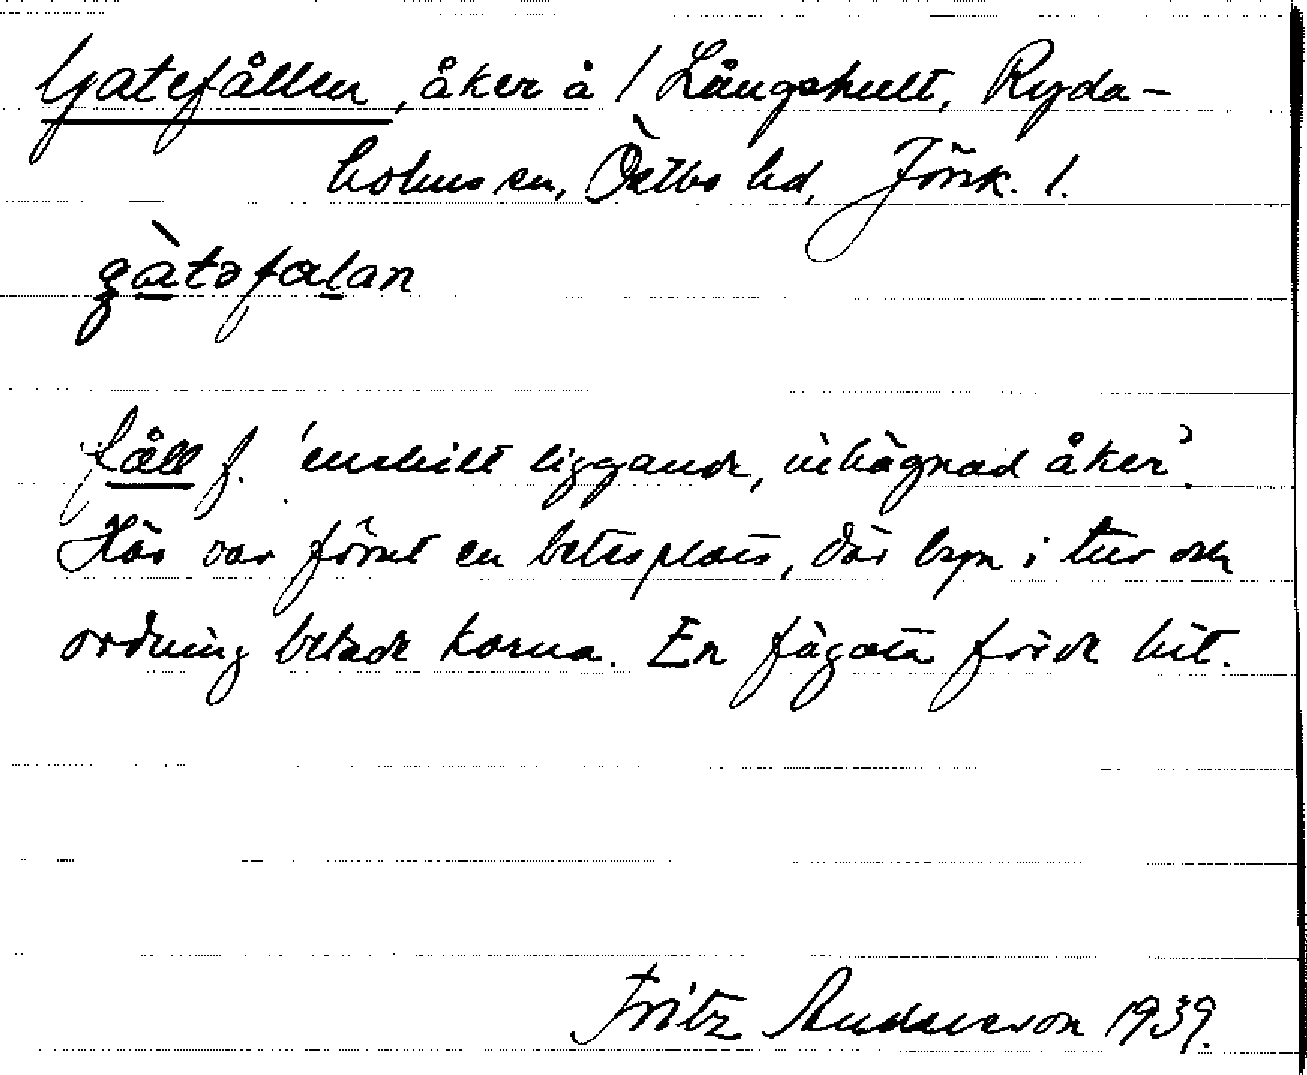 Gatefållen, åker å 1 Långshult, Ryda-
holms sn, Östbo hd, Jönk. l.
gàtəfålan
fåll f. 'enskilt liggande, inhägnad åker'.
Här var förut en betesplats, där byn i tur och
ordning betade korna. En fägata förde hit.
Fritz Andersson 1939.